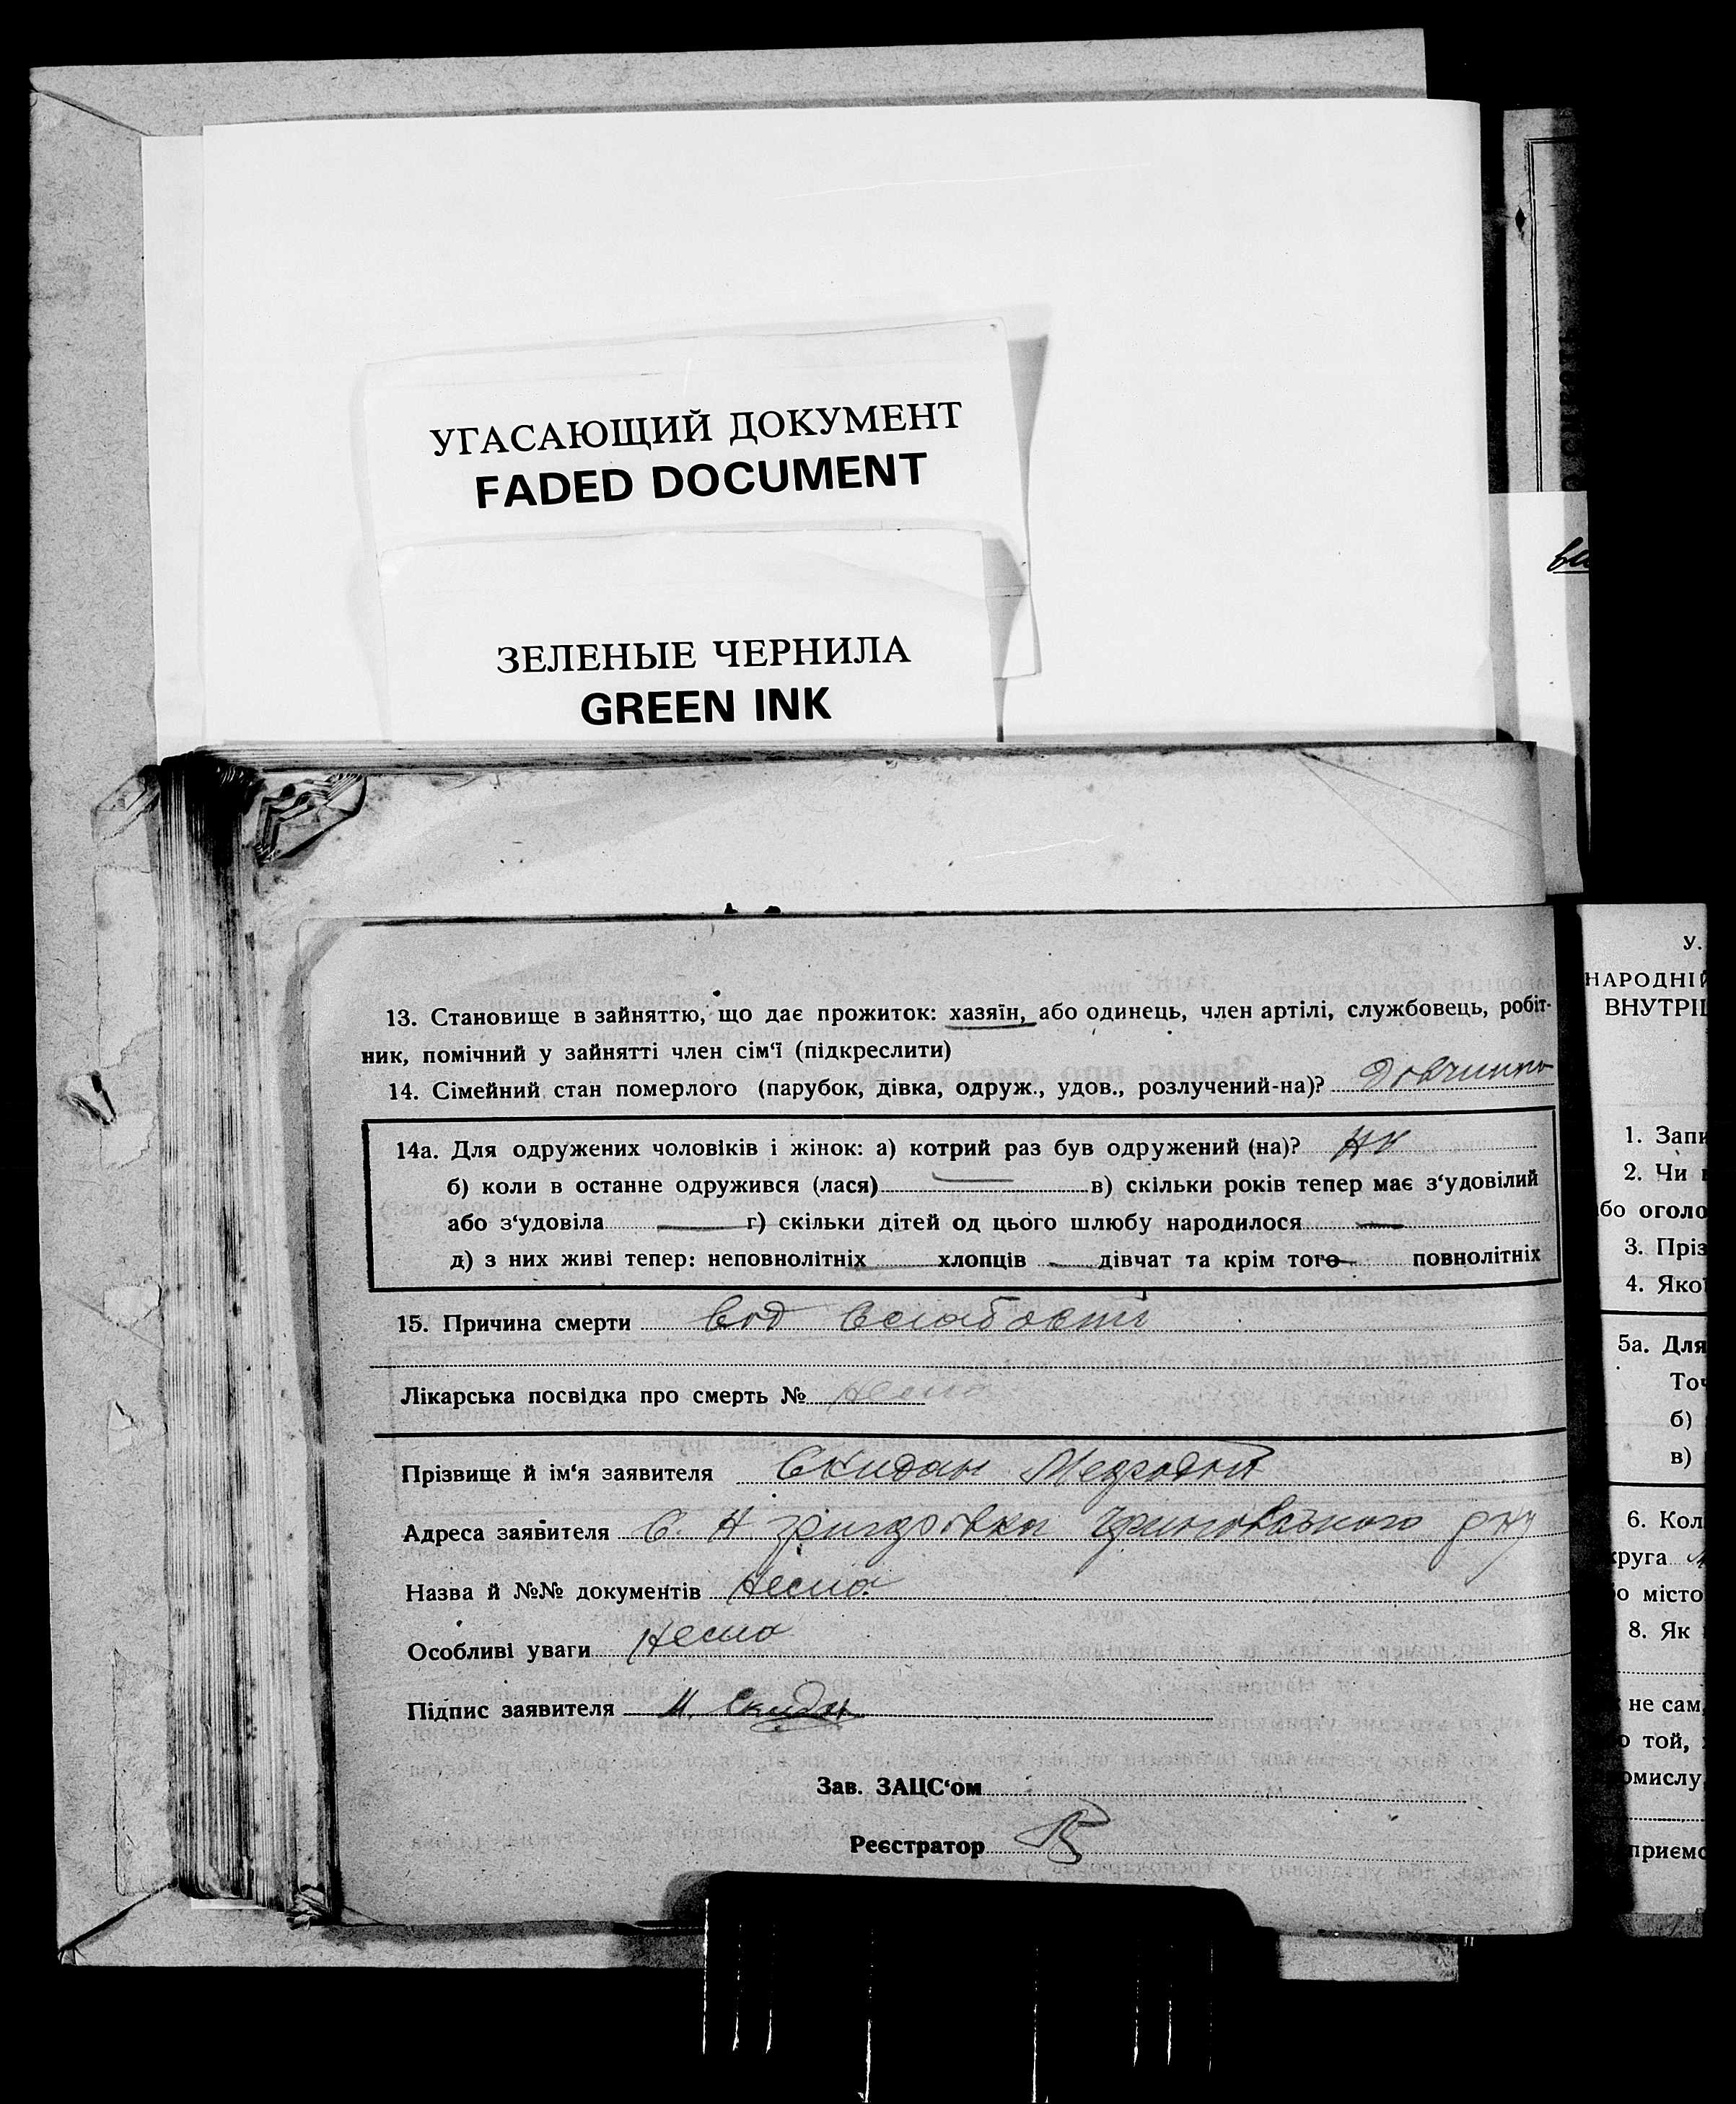 УГАСАЮЩИЙ ДОКУМЕНТ
FADED DOCUMENT
ЗЕЛЕНЫЕ ЧЕРНИЛА
GREEN INK
13. Становище в зайняттю, що дає прожиток: хазяїн, або одинець, член артілі, службовець, робіт-
ник, помічний у зайнятті член сім‘ї (підкреслити)
14. Сімейний стан померлого (парубок, дівка, одруж., удов., розлучений-на)?
14а. Для одружених чоловіків і жінок: а) котрий раз був одружений (на)?
б) коли в останне одружився (лася) в) скільки років тепер має з‘удовілий
або з‘удовіла г) скільки дітей од цього шлюбу народилося
д) з них живі тепер: неповнолітніх хлопців дівчат та крім того повнолітніх
15. Причина смерти Вод вслабости
Лікарська посвідка про смерть № Нема
Прізвище й ім‘я заявителя Скидан
Адреса заявителя С.
Назва й №№ документів Нема
Особливі уваги Нема
Підпис заявителя М. Скидан
Зав. ЗАЦС‘ом
Реєстратор
У.
НАРОДНІЙ
ВНУТРІ
1. Запи
2. Чи
бо оголо
3. Пріз
4. Якої
5а. Для
Точ
б)
в)
6. Кол
круга
о місто
8. Як
не сам,
о той,
омислу
приємс